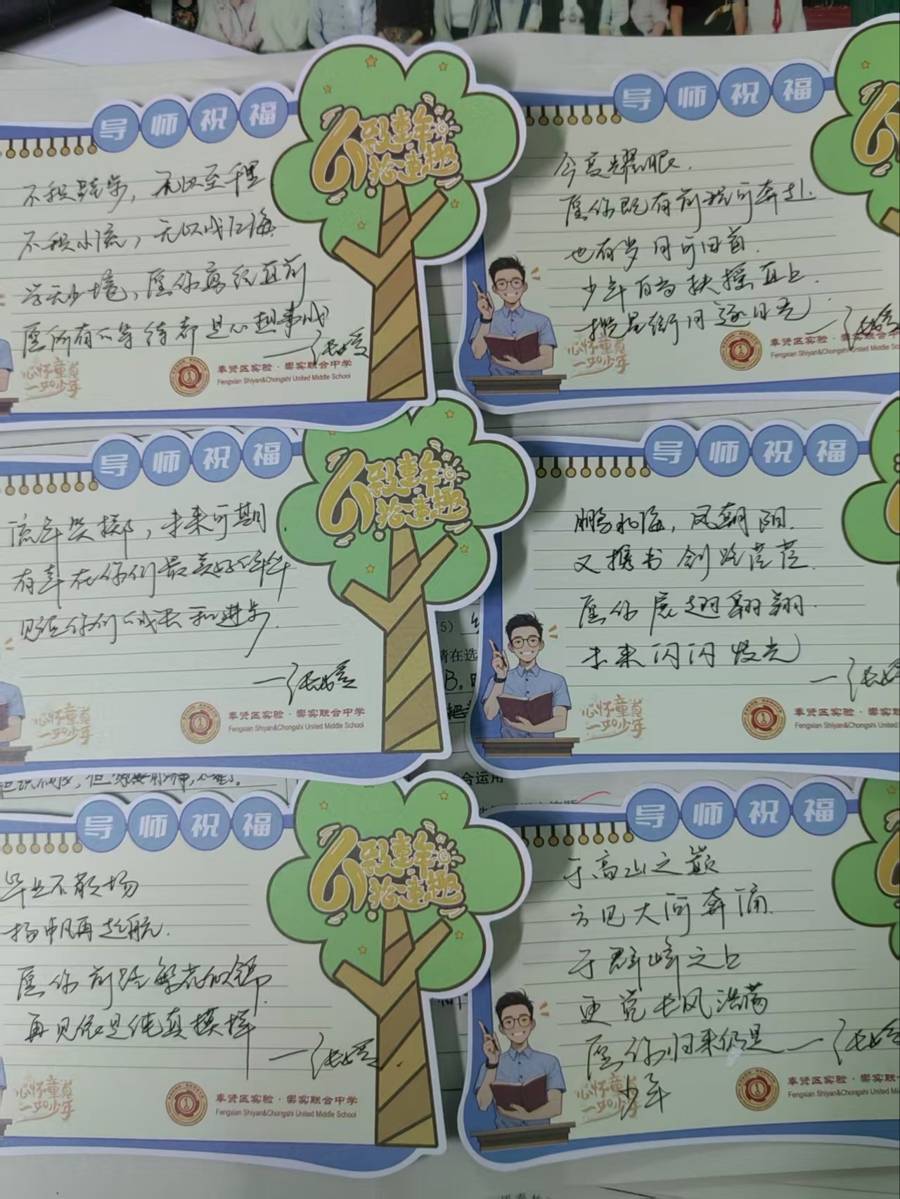 导师祝福
不积跬步，无以至千里
不积小流，无以成江海
学无止境，愿你勇往直前
愿所有的等待都是心想事成
心怀童真
一如少年
奉贤区实验·崇实联合中学
Fengxian Shiyan&Chongshi United Middle School
导师祝福
今夏耀眼.
愿你既有前程可奔赴.
也有岁月可回首.
少年自当扶摇直上
揽星衔月逐日光
心怀童真
一如少年
奉贤区实验·崇实联合中学
Fengxian Shiyan&Chongshi United Middle School
导师祝福
流年笑掷，未来可期
有幸在你们最美好的年华
见证你们的成长和进步.
心怀童真
一如少年
奉贤区实验·崇实联合中学
Fengxian Shiyan&Chongshi United Middle School
导师祝福
鹏北海，凤朝阳.
又携书剑路茫茫.
愿你展翅翱翔.
未来闪闪发光
心怀童真
一如少年
奉贤区实验·崇实联合
Fengxian Shiyan&Chongshi Unite
导师祝福
毕业不散场
扬帆再起航.
愿你前路繁花似锦.
再见依是纯真模样
心怀童真
一如少年
奉贤区实验·崇实联合中学
Fengxian Shiyan&Chongshi United Middle School
导师祝福
于高山之巅
方见大河奔涌.
于群峰之上
更觉长风浩荡
愿你归来仍是
少年
心怀童真
一如少年
奉贤区实验·崇实联合
Fengxian Shiyan&Chongshi United Mid